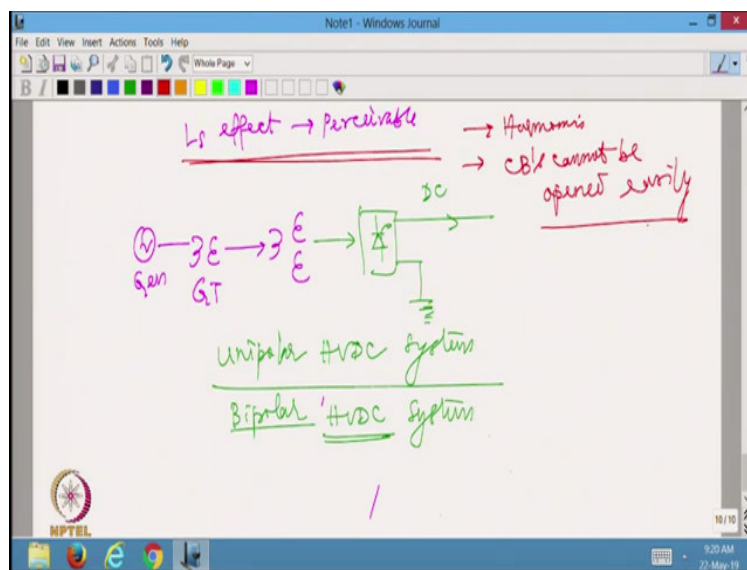 Note1 - Windows Journal
File Edit View Insert Actions Tools Help
Whole Page
B I
Ls effect → Perceivable → Harmonics
→ CB's cannot be
opened easily
DC
Gen
GT
Unipolar HVDC System
Bipolar HVDC System
NPTEL
10/10
9:20 AM
22-May-19